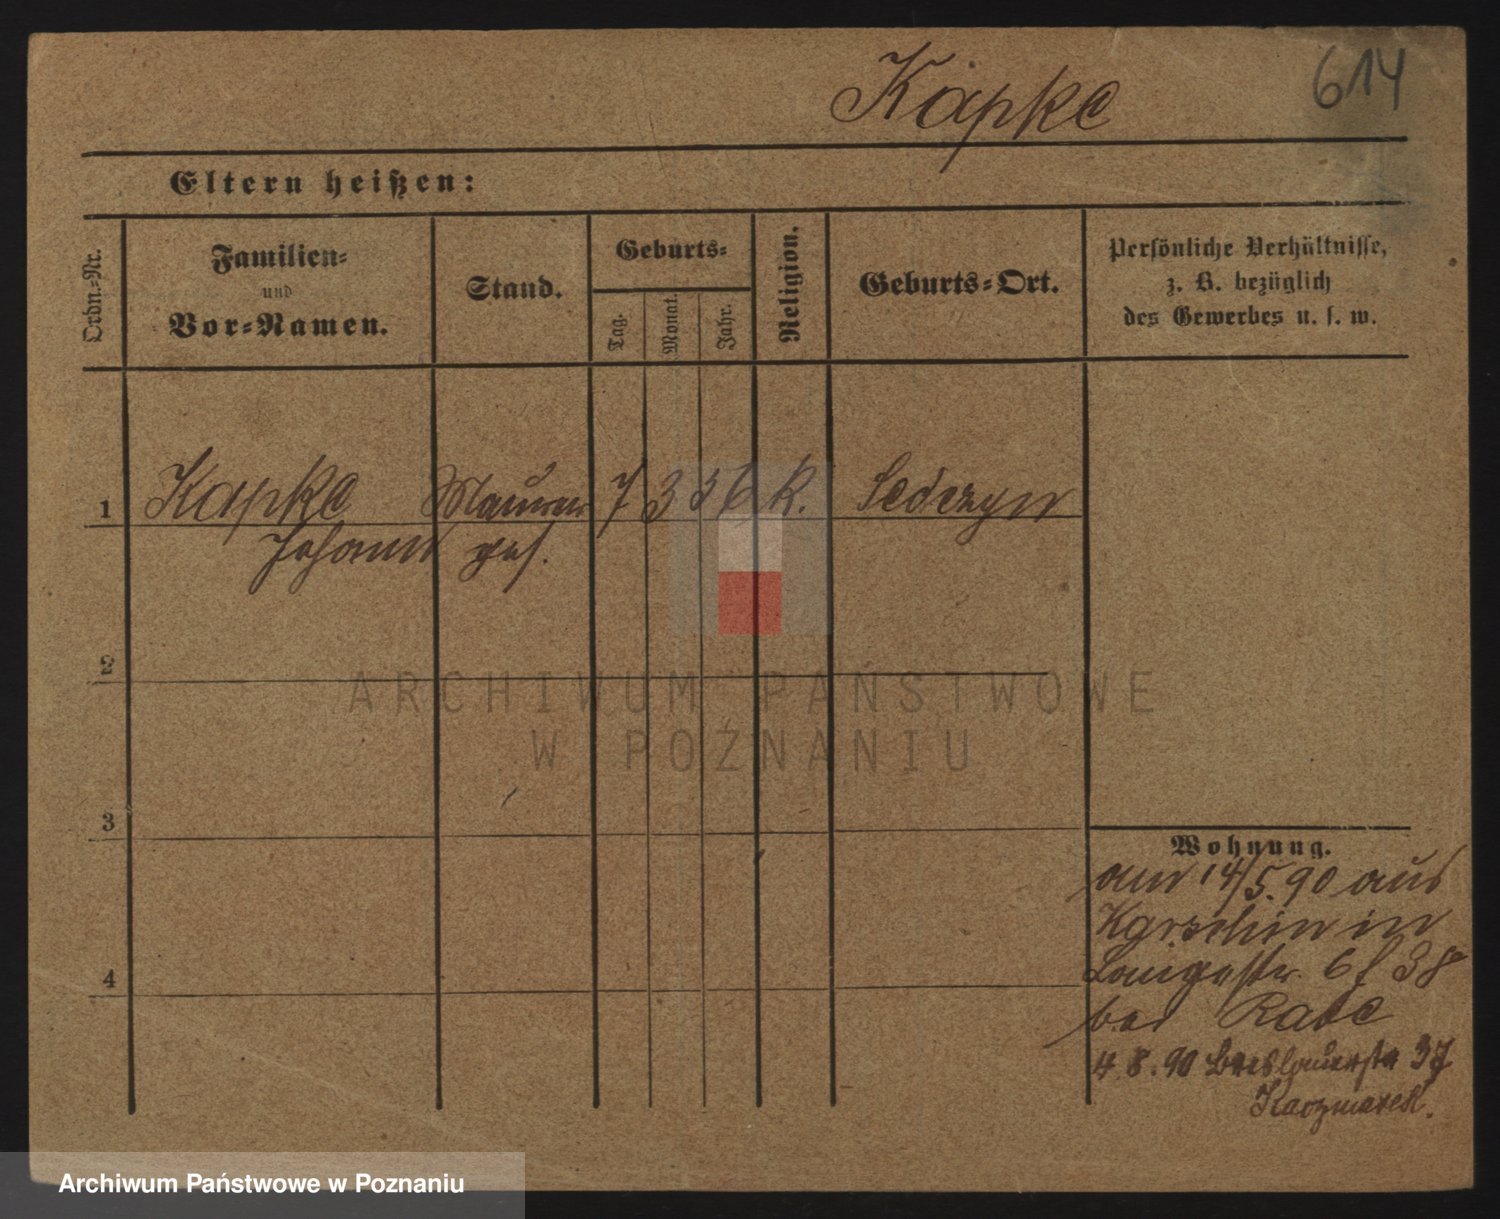 Kapke
614
Eltern heißen:
Ordn.-Nr.
Familien-
und
Vor-Namen.
Stand.
Geburts-
Tag.
Monat.
Jahr.
Religion.
Geburts-Ort.
Persönliche Verhältnisse,
z. B. bezüglich
des Gewerbes u. s. w.
1 Kapke Maurer 7 3 56 k.
Johann ges.
2
3
4
Wohnung.
am 14/5.90 aus
in
6
bei
4.8.90 Breslauerstr 37
Kaczmarek.
ARCHIWUM PAŃSTWOWE
W POZNANIU
Archiwum Państwowe w Poznaniu